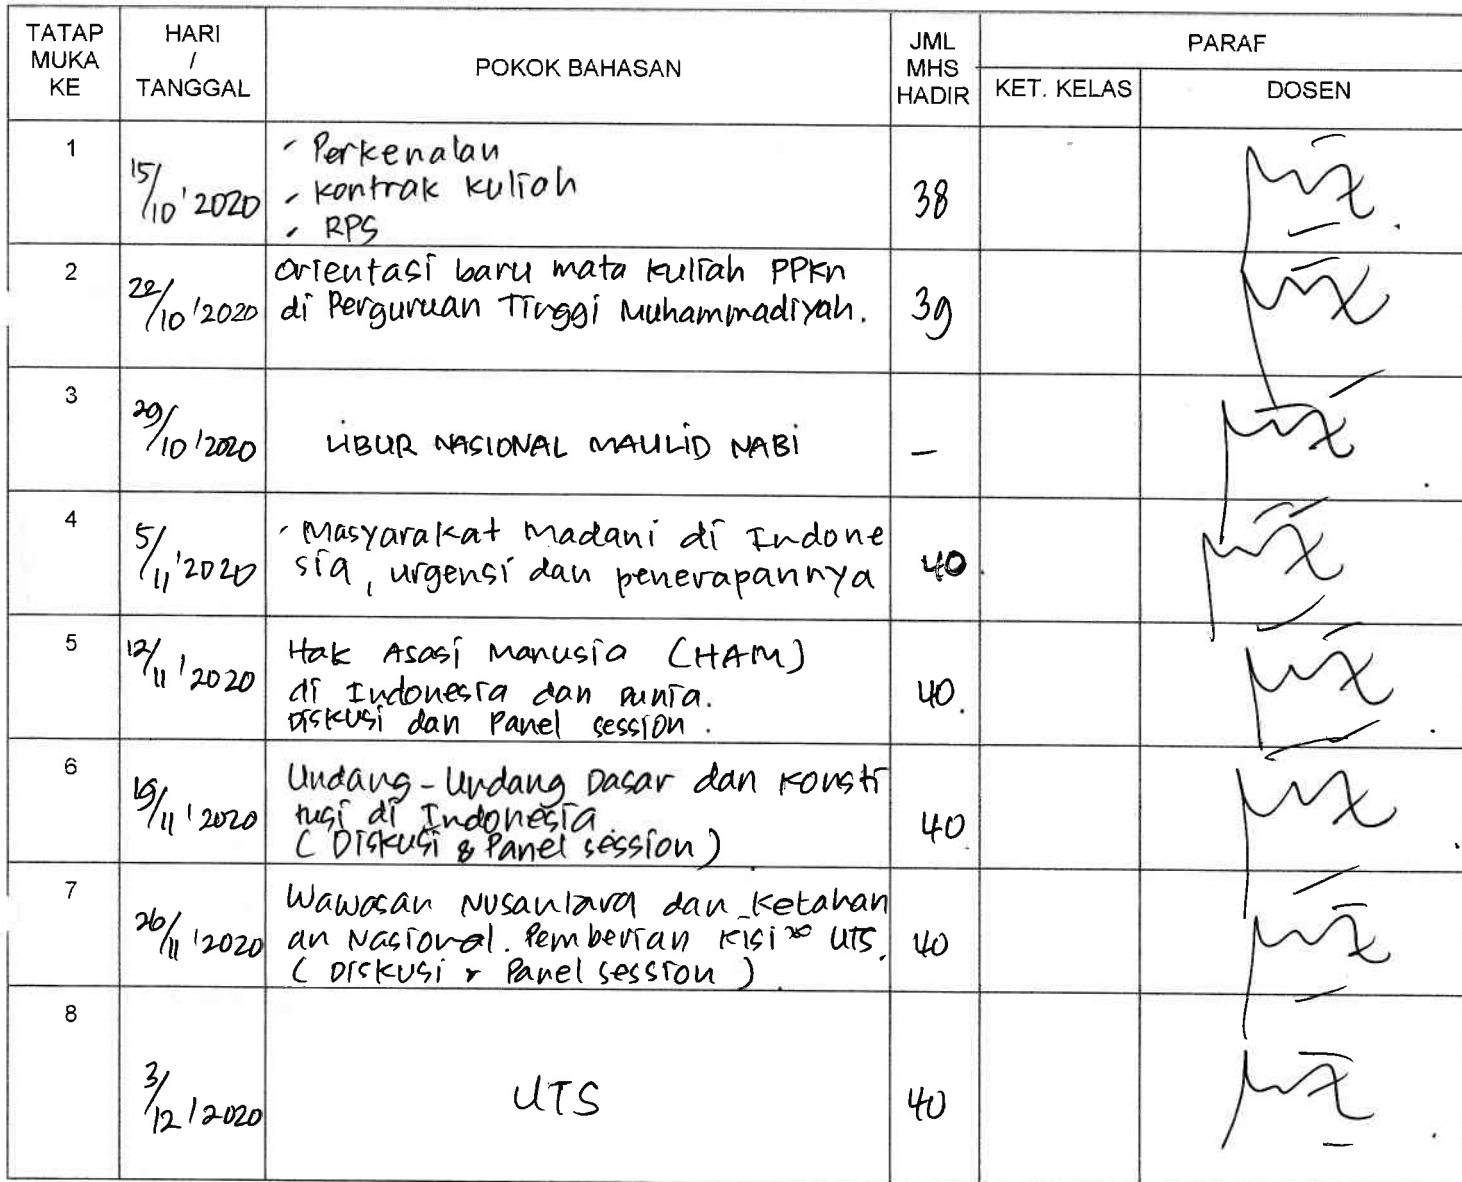 TATAP MUKA KE
HARI / TANGGAL
POKOK BAHASAN
JML MHS HADIR
PARAF
KET. KELAS
DOSEN
1
15/10 '2020
- Perkenalan
- Kontrak Kuliah
- RPS
38
2
22/10 '2020
Orientasi baru mata kuliah PPKn
di Perguruan Tinggi Muhammadiyah.
39
3
29/10 '2020
LIBUR NASIONAL MAULID NABI
-
4
5/11 '2020
- Masyarakat Madani di Indone
sia, urgensi dan penerapannya
40
5
12/11 '2020
Hak Asasi Manusia (HAM)
di Indonesia dan Dunia.
Diskusi dan Panel session.
40.
6
19/11 '2020
Undang-Undang Dasar dan Konsti
tusi di Indonesia
(Diskusi & Panel session)
40
7
26/11 '2020
Wawasan Nusantara dan Ketahan
an Nasional. Pemberian Kisi² UTS.
(Diskusi & Panel session)
40
8
3/12 '2020
UTS
40